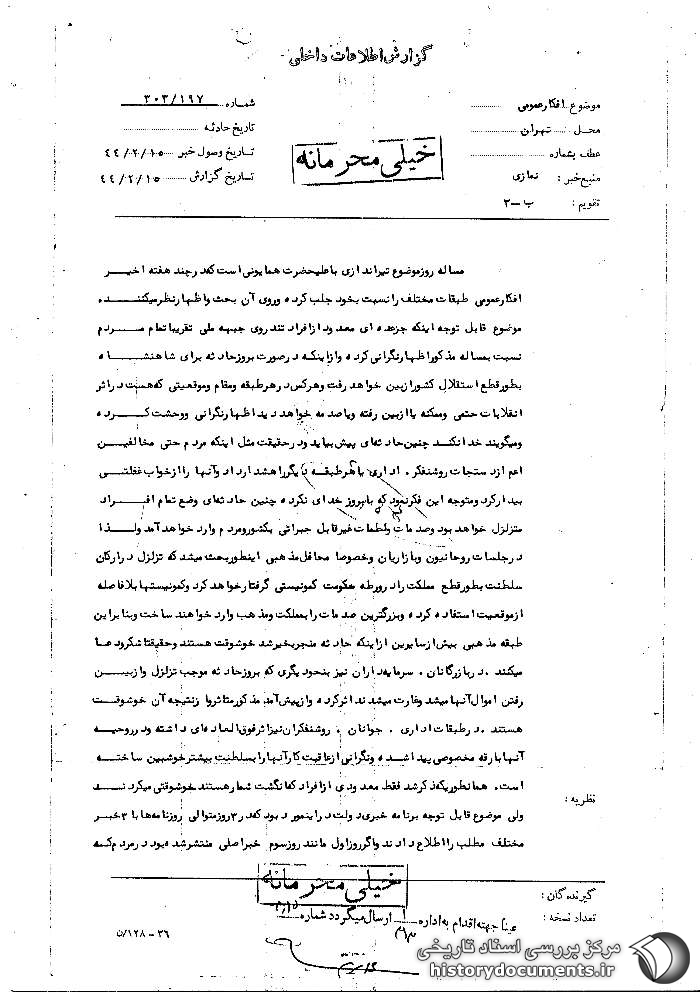 گزارش اطلاعات داخلی
موضوع : افکار عمومی
محل : تهران
عطف بشماره
منبع خبر : نمازی
تقویم : ب ـ ۲
شماره ۳۰۳/۱۹۷
تاریخ حادثه
تاریخ وصول خبر ۴۴/۲/۱۵
تاریخ گزارش ۴۴/۲/۱۵
خیلی محرمانه
مساله روز موضوع تیراندازی باعلیحضرت همایونی است که در چند هفته اخیر
افکار عمومی طبقات مختلف را نسبت بخود جلب کرده و روی آن بحث و اظهار نظر میکنند
موضوع قابل توجه اینکه جز عده ای معدود از افراد تندروی جبهه ملی تقریبا تمام مردم
نسبت بمساله مذکور اظهار نگرانی کرده و از اینکه در صورت بروز حادثه برای شاهنشاه
بطور قطع استقلال کشور از بین خواهد رفت و هرکس در هر طبقه و مقام و موقعیتی که هست در اثر
انقلابات حتمی و ممکنه یا از بین رفته و یا صدمه خواهد دید اظهار نگرانی و وحشت کرده
و میگویند خدا نکند چنین حادثه ای پیش بیاید و در حقیقت مثل اینکه مردم حتی مخالفین
اعم از دستجات روشنفکر ، اداری یا هر طبقه دیگر را هشدار داد و آنها را از خواب غفلتی
بیدار کرد و متوجه این فکر نمود که با بروز خدای نکرده چنین حادثه ای وضع تمام افراد
متزلزل خواهد بود و صدمات و لطمات غیرقابل جبرانی بکشور و مردم وارد خواهد آمد ولذا
در جلسات روحانیون و بازاریان و خصوصا محافل مذهبی اینطور بحث میشد که تزلزل در ارکان
سلطنت بطور قطع مملکت را در ورطه حکومت کمونیستی گرفتار خواهد کرد و کمونیستها بلافاصله
از موقعیت استفاده کرده و بزرگترین صدمات را بمملکت و مذهب وارد خواهند ساخت و بنابراین
طبقه مذهبی بیش از سایرین از اینکه حادثه منجر بخیر شد خوشوقت هستند و حقیقتا شکرو دعا
میکنند . در بازرگانان . سرمایه داران نیز بنحو دیگری که بروز حادثه موجب تزلزل و از بین
رفتن اموال آنها میشد و غارت میشدند اثر کرده و از پیش آمد مذکور متاثر و از نتیجه آن خوشوقت
هستند . در طبقات اداری . جوانان . روشنفکران نیز اثر فوق العاده ای داشته و در روحیه
آنها بارقه مخصوصی پیدا شده و نگرانی از عاقبت کار آنها را بسلطنت بیشتر خوشبین ساخته
است . همانطوریکه ذکر شد فقط معدودی از افراد که انگشت شمار هستند خوشوقتی میکردند
ولی موضوع قابل توجه برنامه خبری دولت در اینمورد بود که در ۳ روز متوالی روزنامه ها با ۳ خبر
مختلف مطلب را اطلاع دادند و اگر روز اول مانند روز سوم خبر اصلی منتشر شده بود در مردم که
نظریه :
خیلی محرمانه
گیرندگان :
تعداد نسخه :
عینا جهته اقدام به اداره ارسال میگردد شماره
۳۶ – ۱۲۸/ن
مرکز بررسی اسناد تاریخی
historydocuments.ir